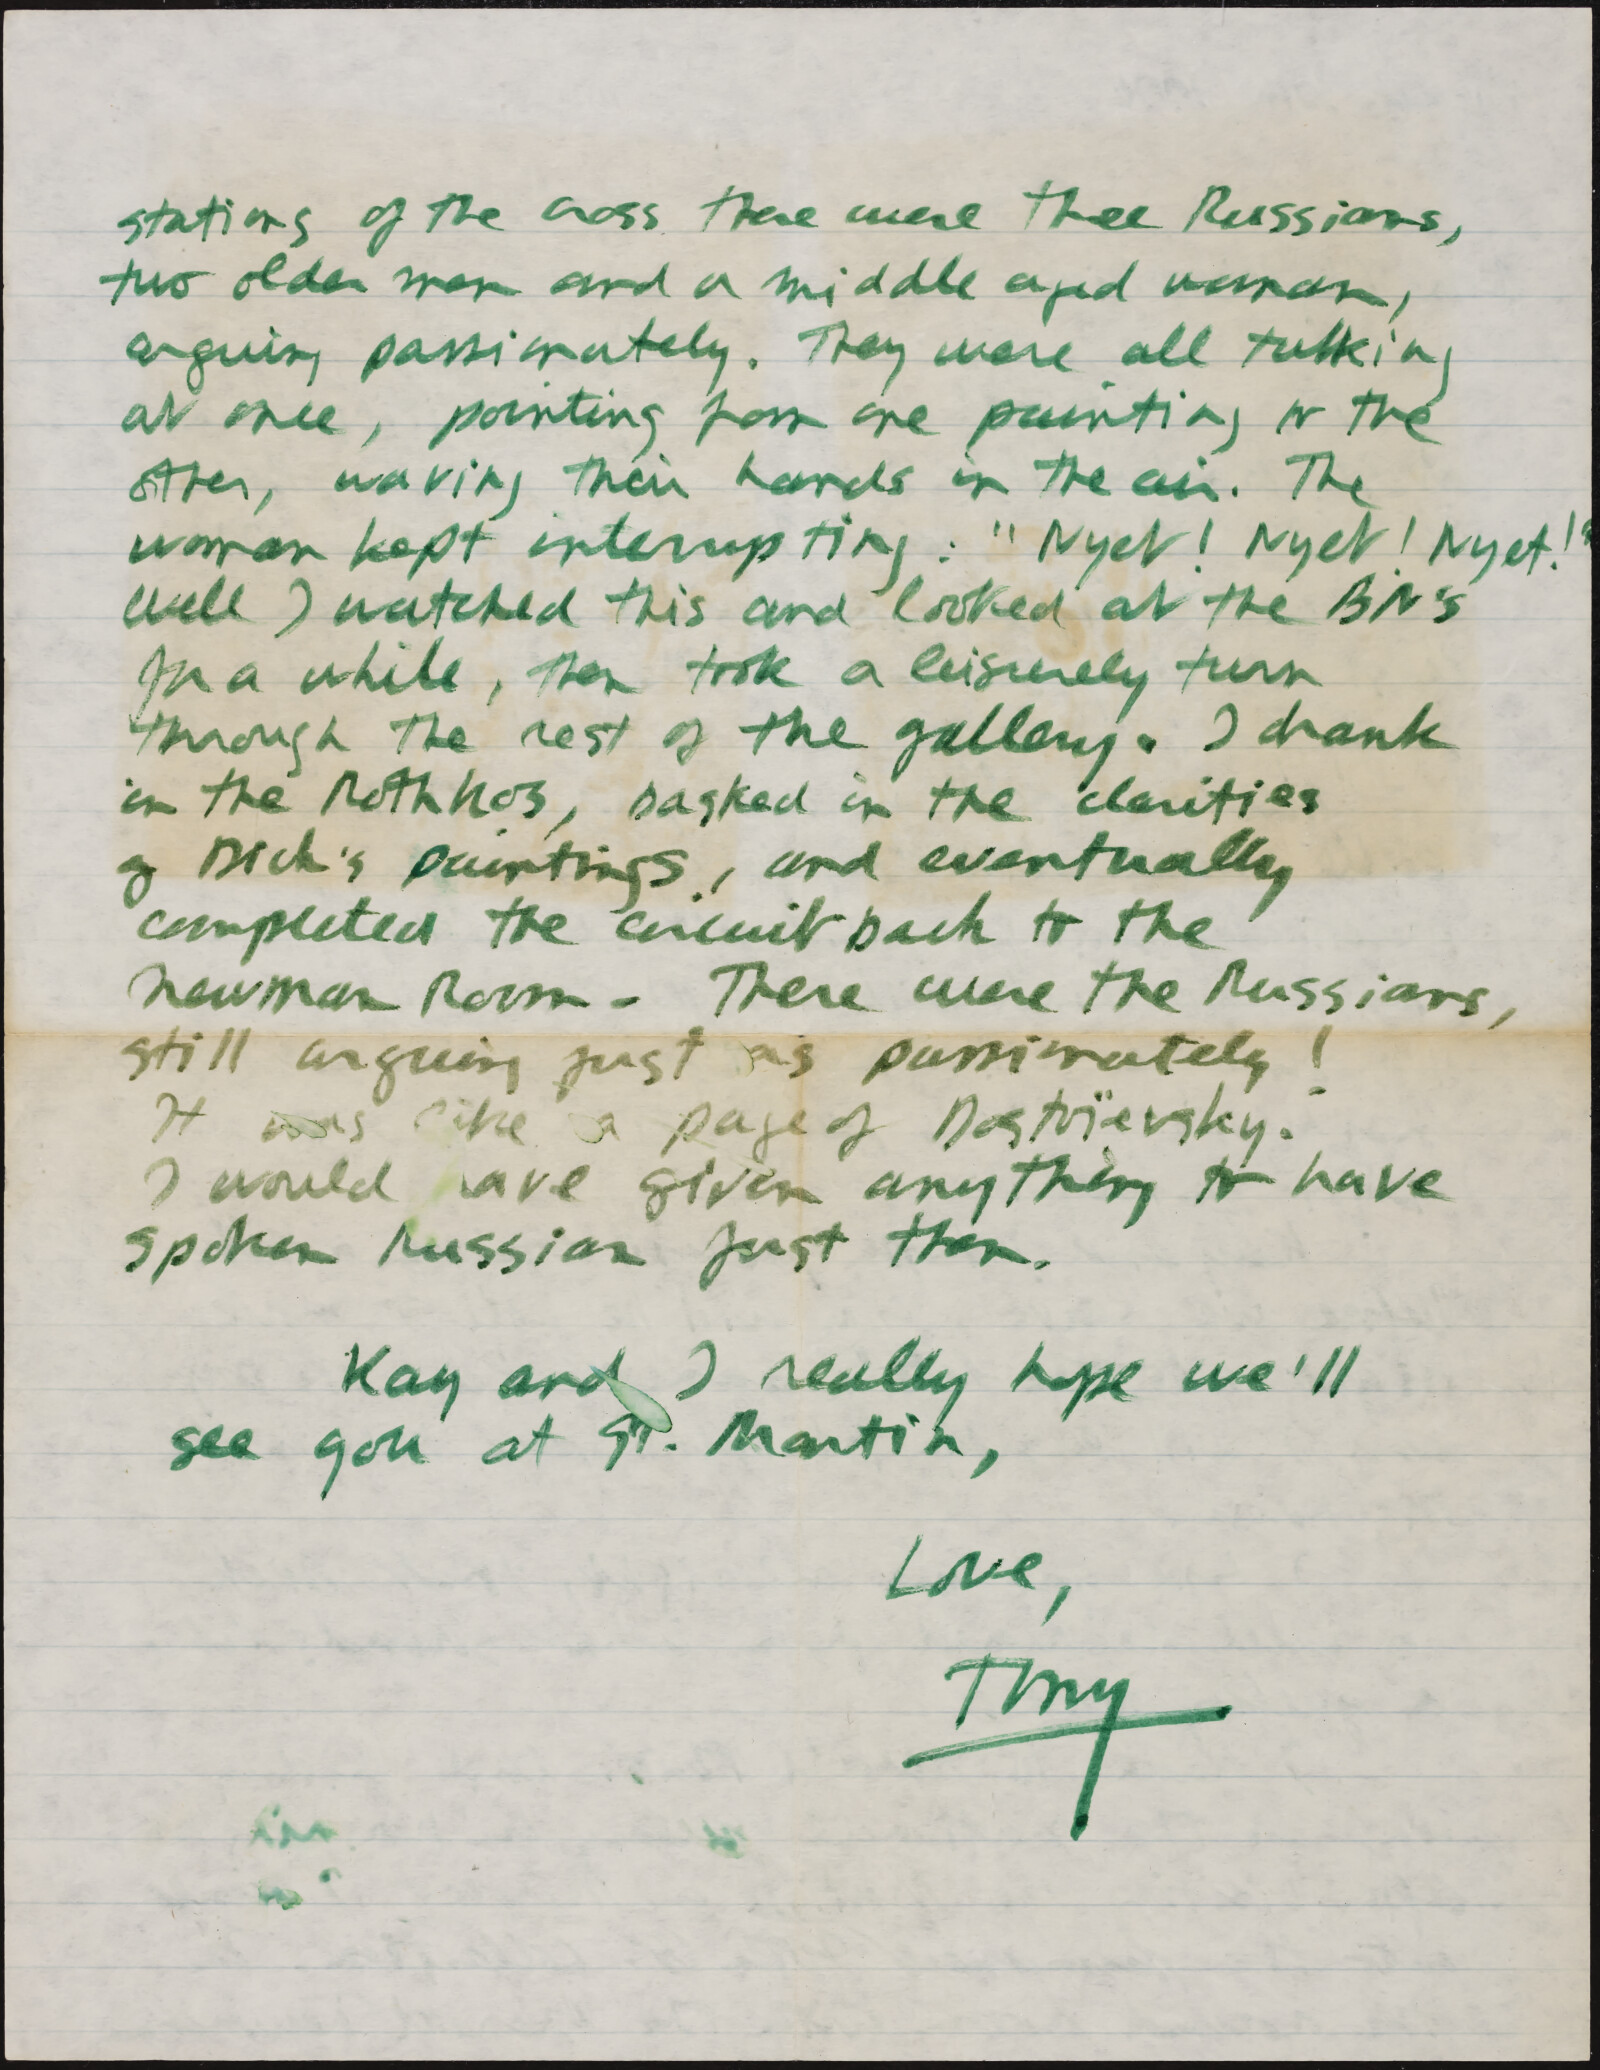 stations of the cross there were three Russians,
two older men and a middle aged woman,
arguing passionately. They were all talking
at once, pointing from one painting to the
other, waving their hands in the air. The
woman kept interrupting: "Nyet! Nyet! Nyet!"
Well I watched this and looked at the BN's
for a while, then took a leisurely turn
through the rest of the gallery. I drank
in the Rothkos, basked in the clarities
of Dick's paintings, and eventually
completed the circuit back to the
Newman Room - There were the Russians,
still arguing just as passionately!
It was like a page of Dostoïevsky.
I would have given anything to have
spoken Russian just then.
Kay and I really hope we'll
see you at St. Martin,
Love,
Tony